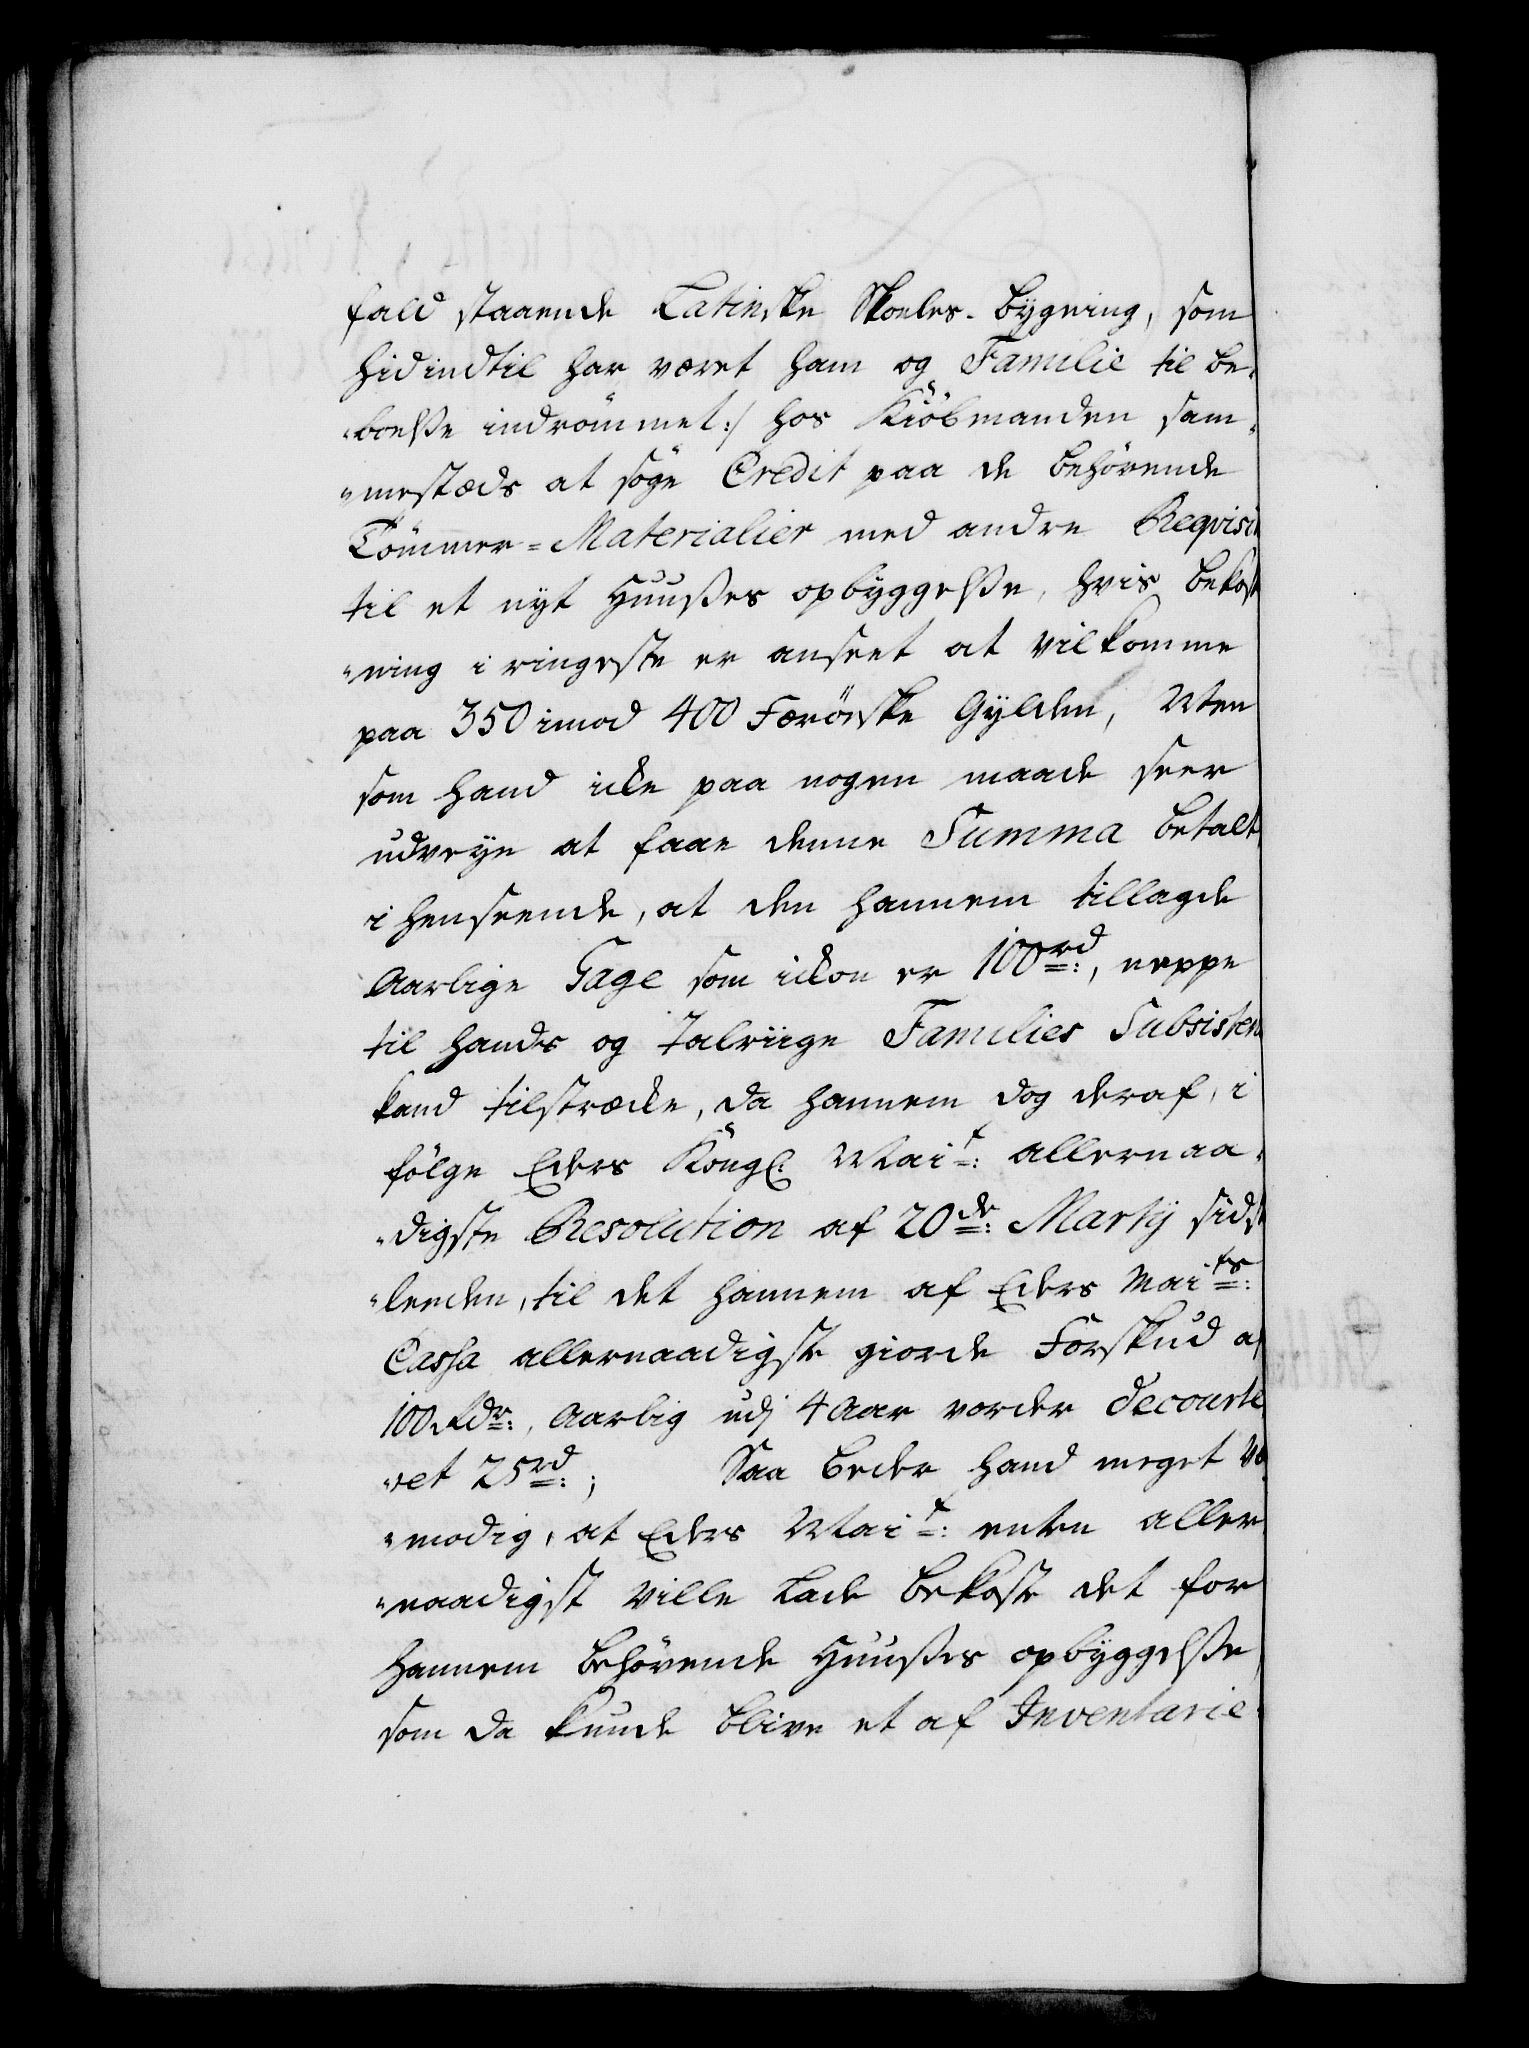 fald staaende Latinske Skoeles-bygning, som
hidindtil har været ham og Familie til be-
"boelße indrömmet:/ hos Kiöbmanden sam-
"mestæds at söge Credit paa de behövende
Tömmer-Materialier med andre Reqvisi
til et nyt Huußes opbyggelße, hvis bekost
"ning i ringeste er anseet at vil komme
paa 350 imod 400 Færöiske Gylden, Men
som hand icke paa nogen maade seer
udveye at faae denne Summa betalt
i henseende, at den hannem tillagde
Aarlige Gage som ickon er 100 rd:, neppe
til hands og talriige Families Subsisten
kand tilstrække, da hannem dog deraf, i
fölge Eders Kongl: Mai t: allernaa-
"digste Resolution af 20 de: Martij sidst
"leeden, til det hannem af Eders Mai ts:
Cassa allernaadigste giorde Forskud af
100 Rdr:, Aarlig udj 4 Aar vorder decourte
"ret 25 rd:; Saa beder hand meget
"modig, at Eders Mai t: enten aller
"naadigst ville Lade bekoste det for
hannem behövende Huußes opbyggelße
som da kunde blive et af Inventarie-